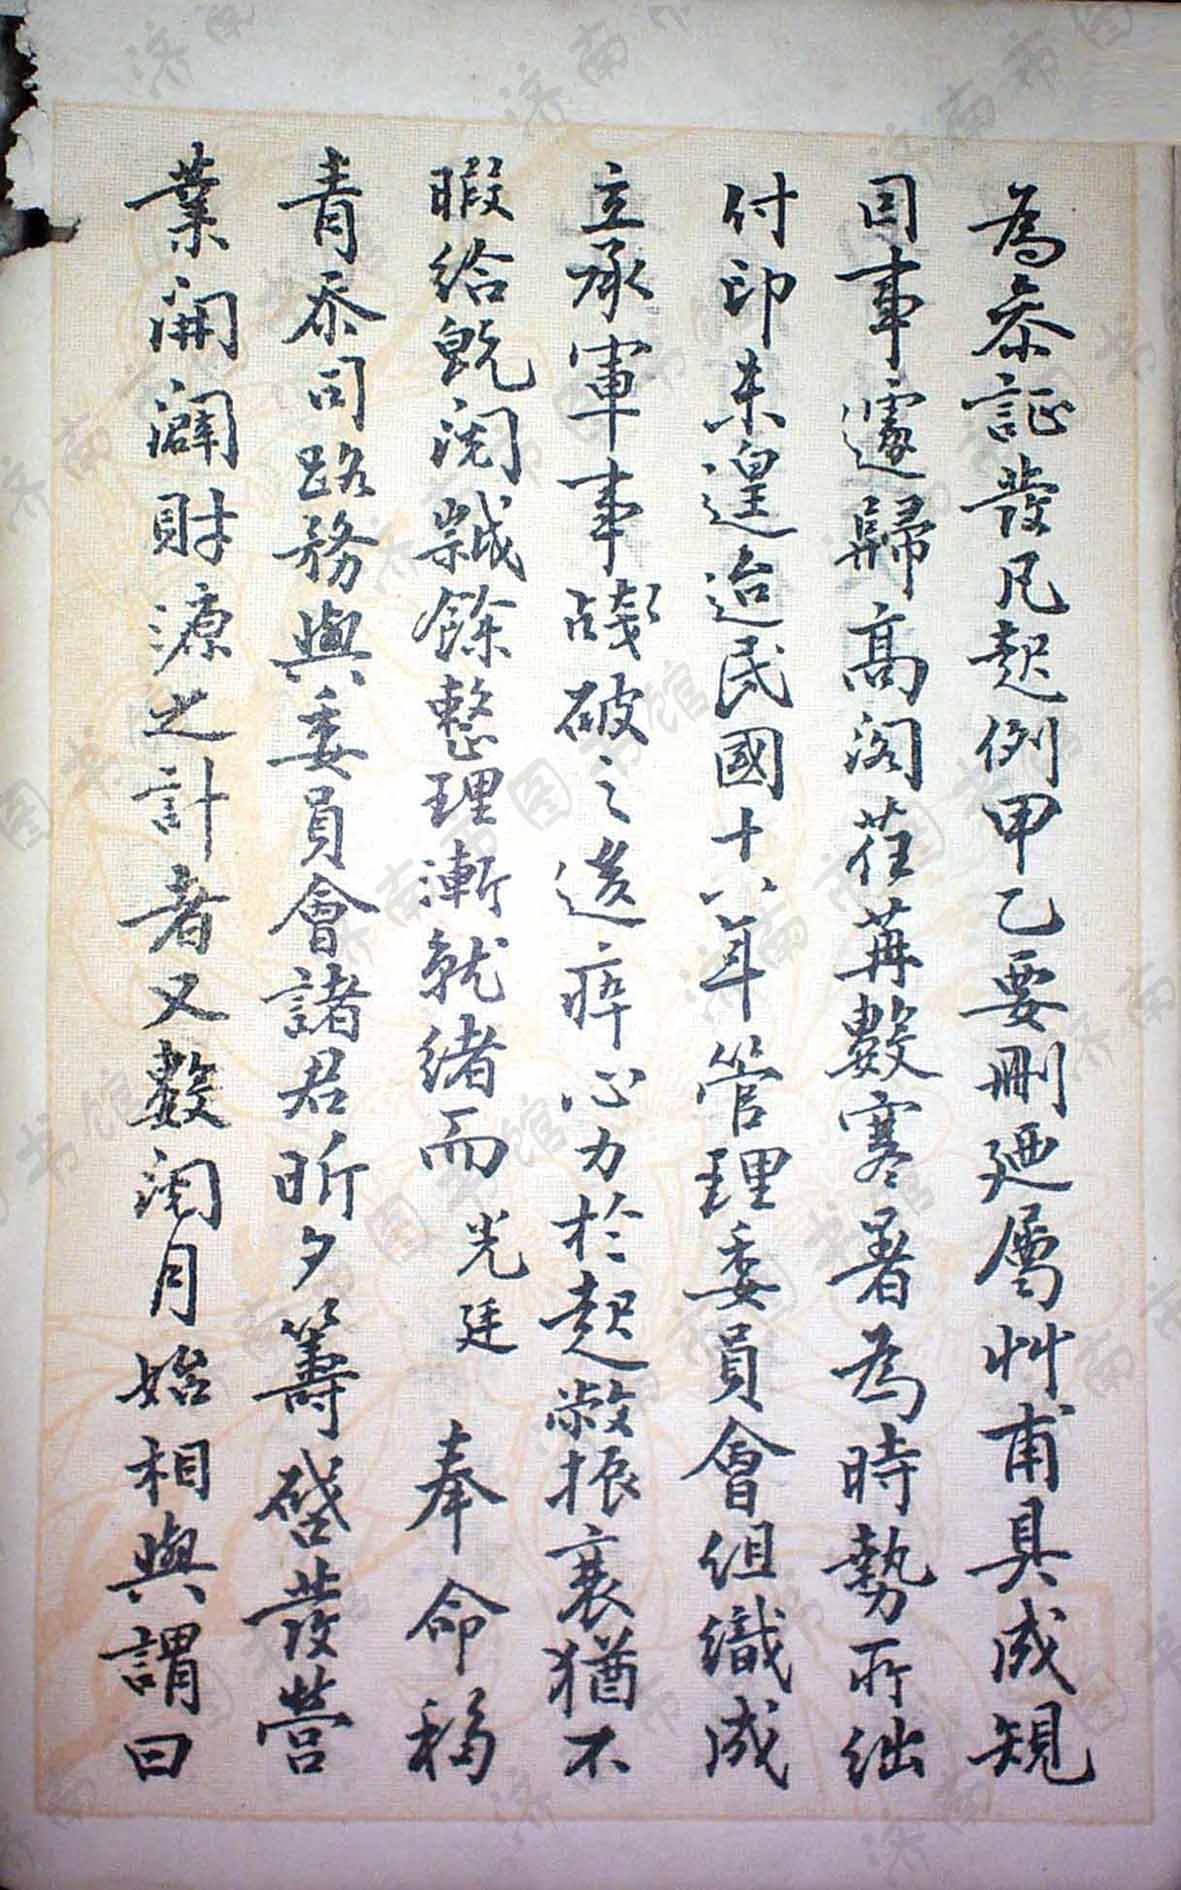 為叅証發凡起例甲乙要刪廼屬艸甫具成規
因事遽歸高閣荏苒數寒暑為時勢所绌
付印未遑迨民國十八年管理委員會組織成
立承軍事殘破之後瘁心力於起敝振衰猶不
暇給旣閱歲餘整理漸就緒而光廷奉命移
青忝司路務與委員會諸君昕夕籌啓發營
業開闢財源之計者又數閱月始相與謂曰